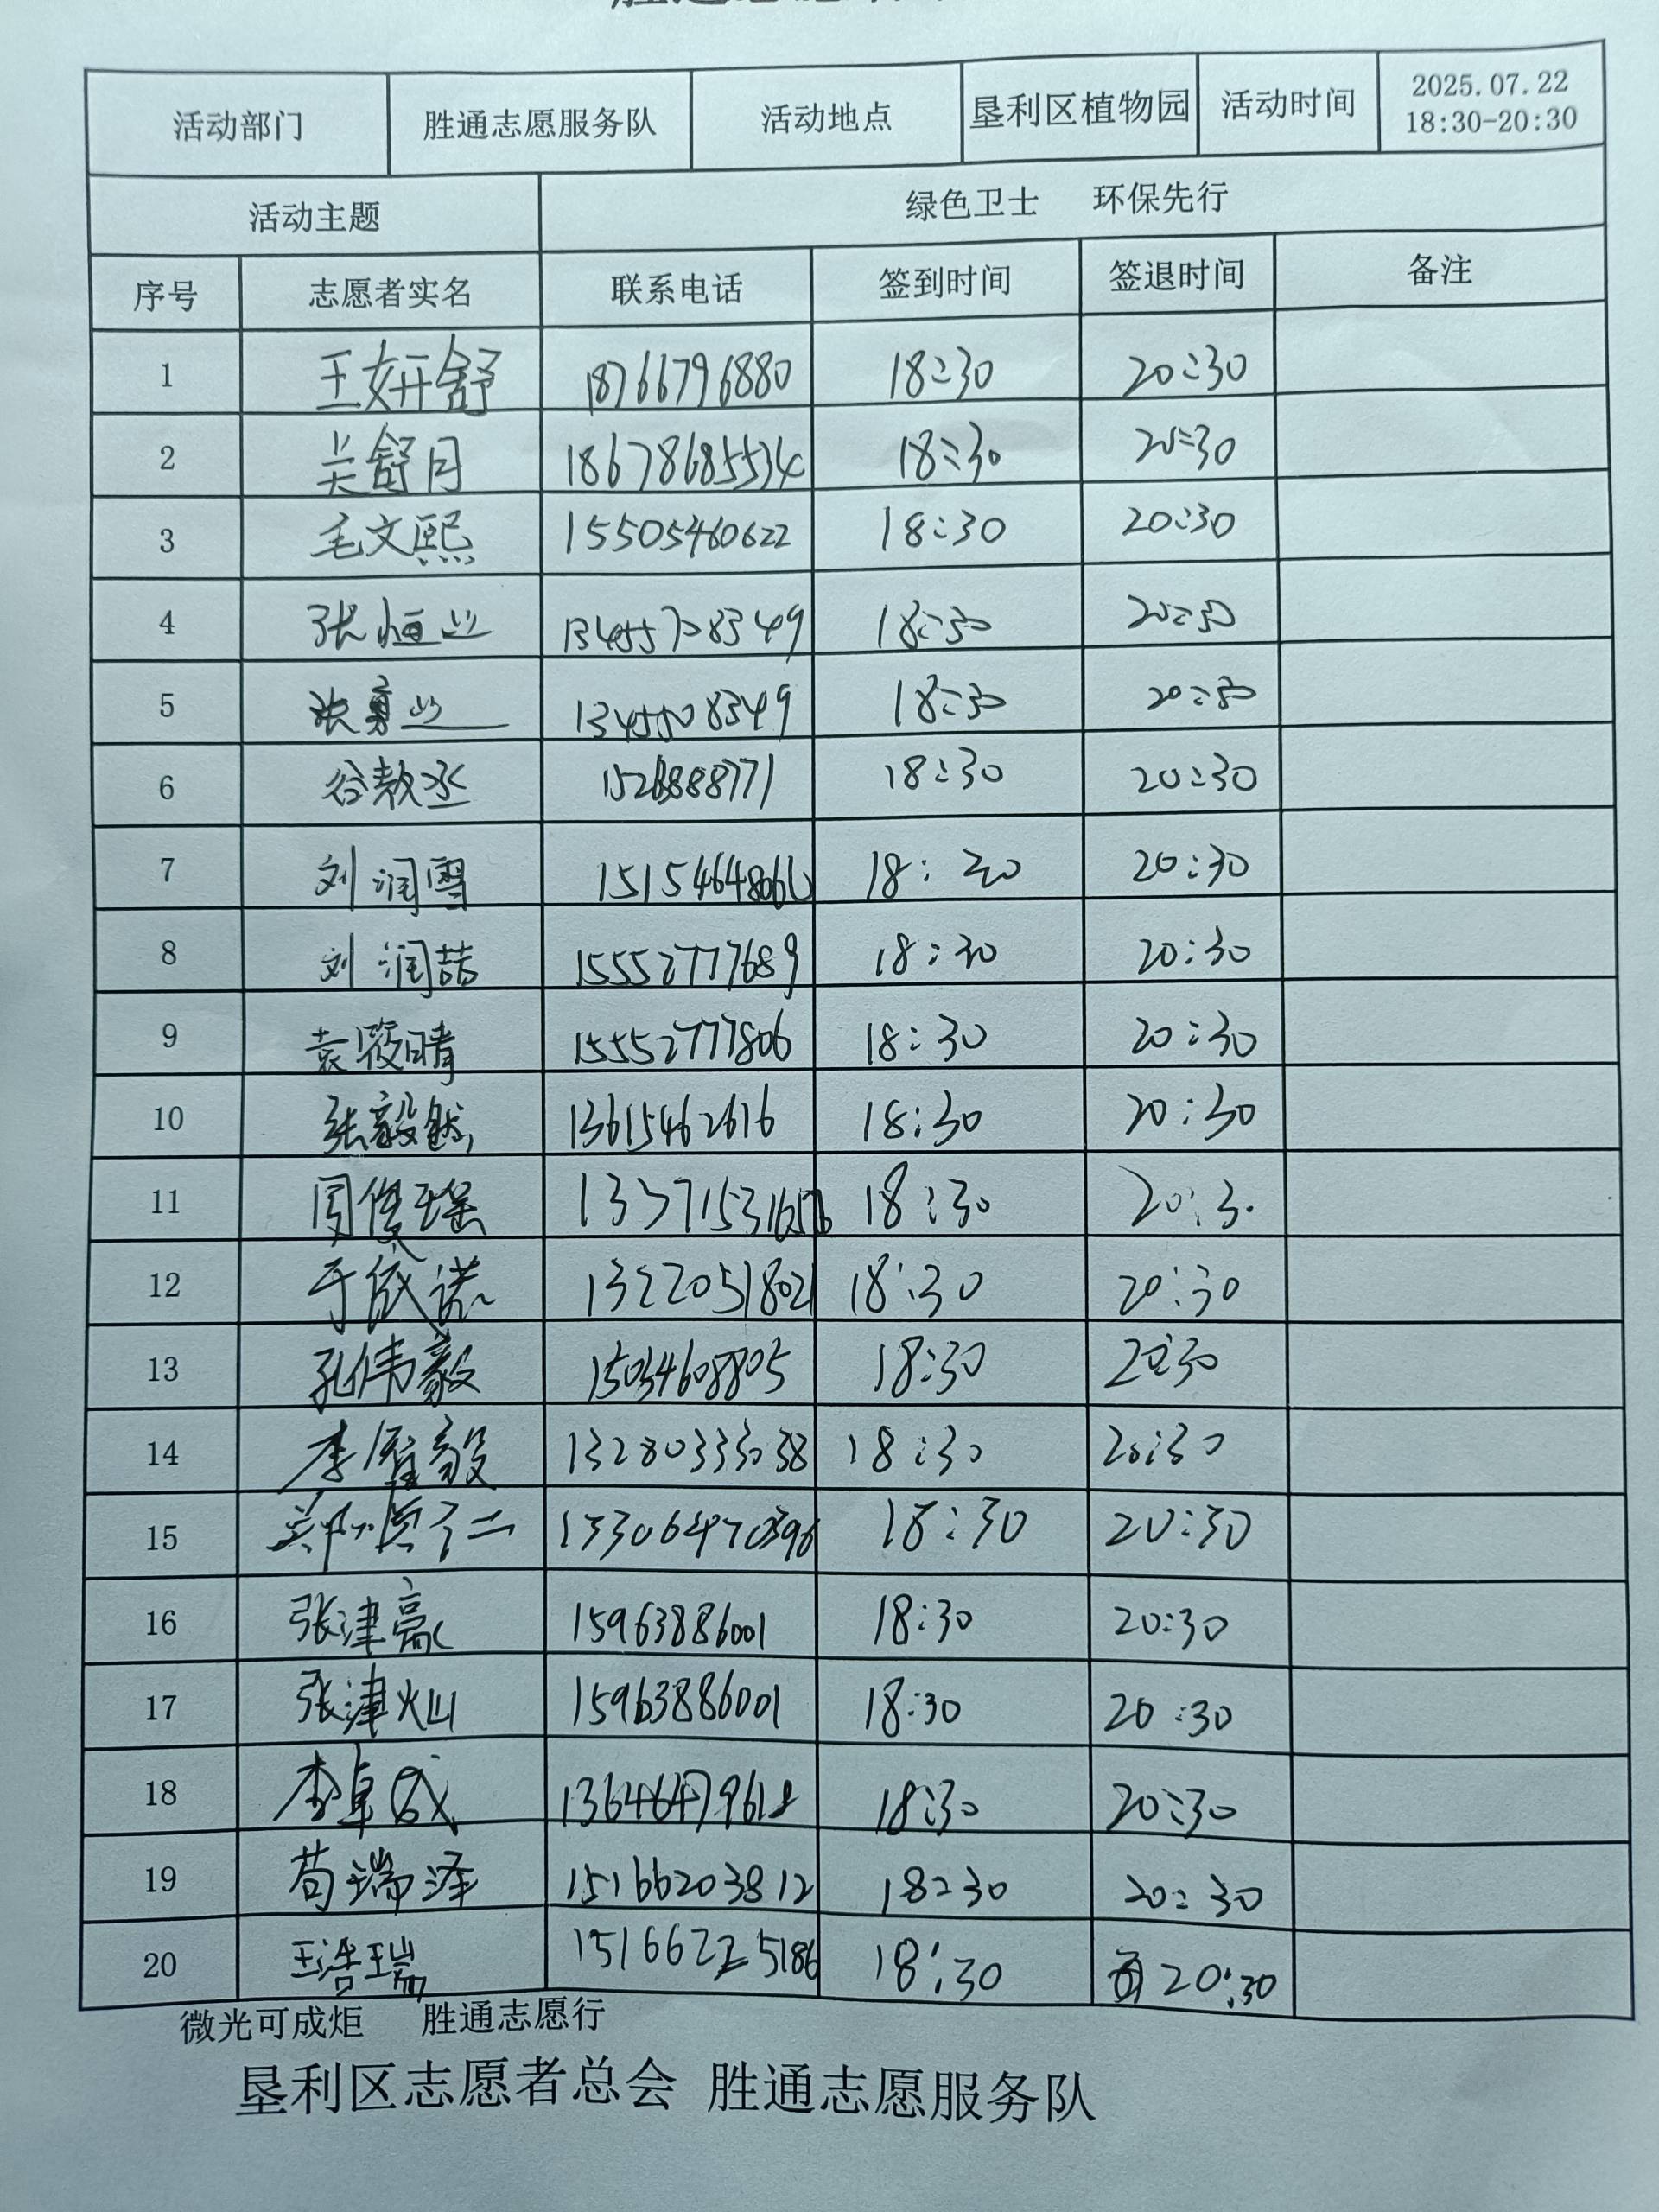 活动部门 胜通志愿服务队 活动地点 垦利区植物园 活动时间 2025.07.22
18:30-20:30
活动主题 绿色卫士 环保先行
序号 志愿者实名 联系电话 签到时间 签退时间 备注
1 王妍舒 18766796880 18:30 20:30
2 关舒月 18678685534 18:30 20:30
3 毛文熙 15505460622 18:30 20:30
4 张恒业 13455708349 18:30 20:30
5 张勇业 13455708349 18:30 20:30
6 谷敖丞 18:30 20:30
7 刘润雪 18:30 20:30
8 刘润喆 15552777689 18:30 20:30
9 袁筱晴 15552777806 18:30 20:30
10 张毅然 13615462616 18:30 20:30
11 18:30 20:30
12 于依诺 13220518021 18:30 20:30
13 孔伟毅 15034608805 18:30 20:30
14 李 毅 13280333038 18:30 20:30
15 18:30 20:30
16 张津豪 15963886001 18:30 20:30
17 张津灿 15963886001 18:30 20:30
18 李卓成 13646479612 18:30 20:30
19 苟瑞泽 15166203812 18:30 20:30
20 王浩瑞 15166225186 18:30 20:30
微光可成炬 胜通志愿行
垦利区志愿者总会 胜通志愿服务队